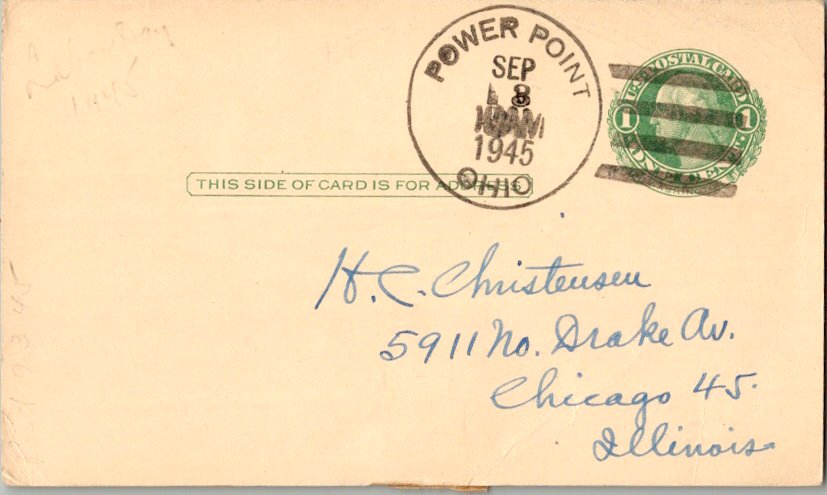 1945
POWER POINT
SEP
8
AM
1945
OHIO
U.S. POSTAL CARD
1 1
ONE CENT
THIS SIDE OF CARD IS FOR ADDRESS
H. C. Christensen
5911 No. Drake Av.
Chicago 45.
Illinois